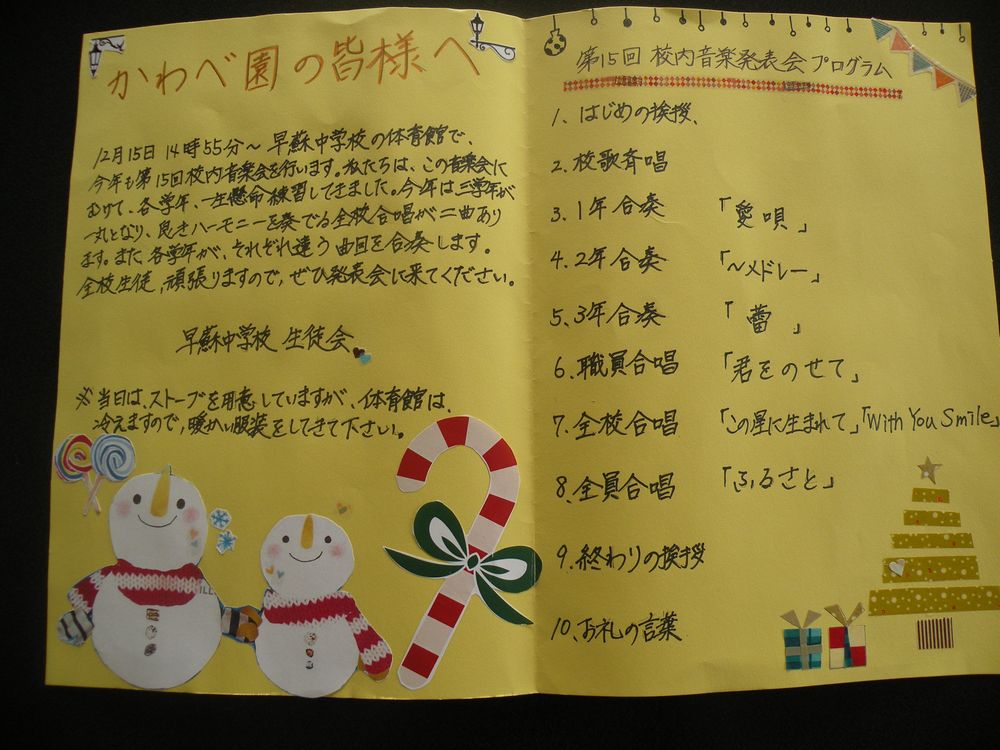 かわべ園の皆様へ
12月15日 14時55分〜 早蘇中学校の体育館で、
今年も第15回校内音楽会を行います。私たちは、この音楽会に
むけて、各学年、一生懸命練習してきました。今年は三学年が
一丸となり、良きハーモニーを奏でる全校合唱が二曲あり
ます。また、各学年が、それぞれ違う曲目を合奏します。
全校生徒,頑張りますので,ぜひ発表会に来てください。
早蘇中学校 生徒会
※当日は、ストーブを用意していますが、体育館は、
冷えますので,暖かい服装をしてきて下さい。
第15回 校内音楽発表会 プログラム
1、はじめの挨拶、
2、校歌斉唱
3、1年合奏 「愛唄」
4、2年合奏 「〜メドレー」
5、3年合奏 「蕾」
6、職員合唱 「君をのせて」
7、全校合唱 「この星に生まれて」「With You Smile」
8、全員合唱 「ふるさと」
9、終わりの挨拶
10、お礼の言葉